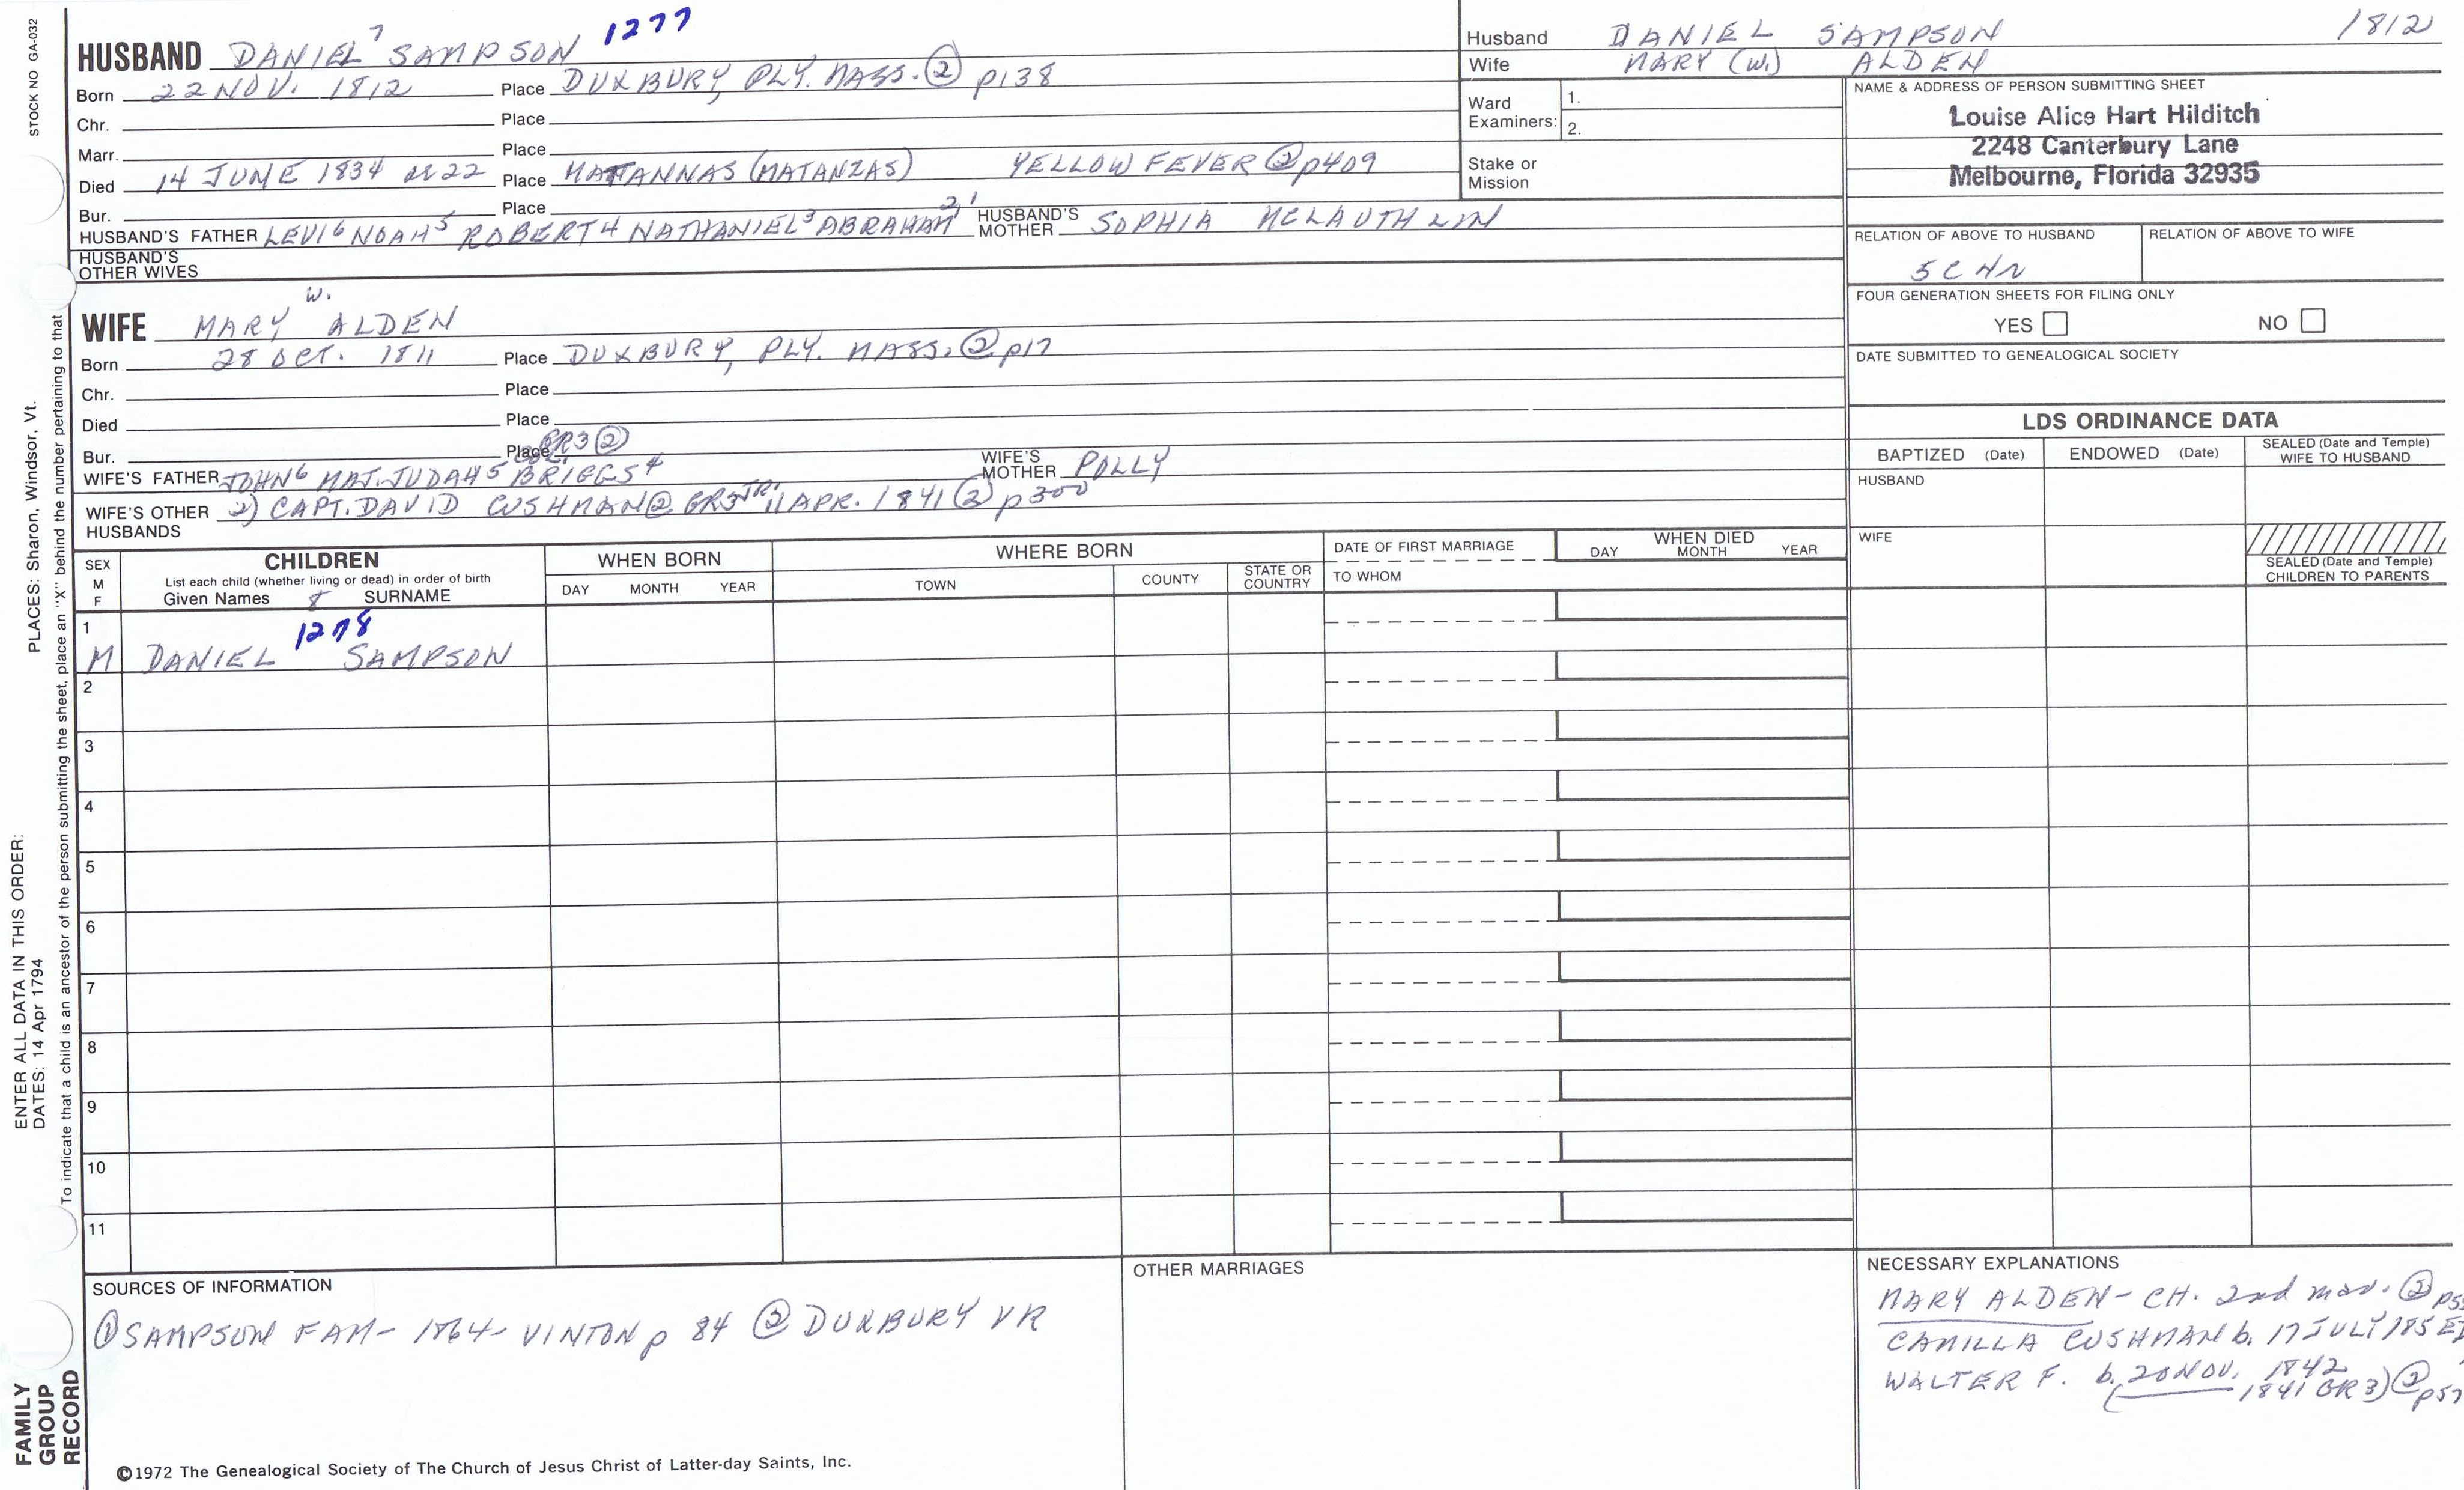 STOCK NO GA-032
PLACES: Sharon, Windsor, Vt.
ENTER ALL DATA IN THIS ORDER:
DATES: 14 Apr 1794
To indicate that a child is an ancestor of the person submitting the sheet, place an "X" behind the number pertaining to that
FAMILY
GROUP
RECORD
HUSBAND DANIEL 7 SAMPSON 1277
Born 22 NOV. 1812 Place DUXBURY, PLY. MASS. ② p138
Chr. Place
Marr. Place
Died 14 JUNE 1834 ae 22 Place MATANNAS (MATANZAS) YELLOW FEVER ② p409
Bur. Place
HUSBAND'S FATHER LEVI 6 NOAH 5 ROBERT 4 NATHANIEL 3 ABRAHAM 2, 1 HUSBAND'S MOTHER SOPHIA MCLAUTHLIN
HUSBAND'S
OTHER WIVES
WIFE MARY W. ALDEN
Born 28 OCT. 1811 Place DUXBURY, PLY. MASS. ② p17
Chr. Place
Died Place
Bur. Place GR3 ②
WIFE'S FATHER JOHN 6 MAJ. JUDAH 5 BRIGGS 4 WIFE'S MOTHER POLLY
WIFE'S OTHER HUSBANDS 2) CAPT. DAVID CUSHMAN ② GR3 JR. 11 APR. 1841 ② p300
Husband DANIEL SAMPSON 1812
Wife MARY (W.) ALDEN
Ward
Examiners:
1.
2.
Stake or
Mission
NAME & ADDRESS OF PERSON SUBMITTING SHEET
Louise Alice Hart Hilditch
2248 Canterbury Lane
Melbourne, Florida 32935
RELATION OF ABOVE TO HUSBAND RELATION OF ABOVE TO WIFE
5C 4R
FOUR GENERATION SHEETS FOR FILING ONLY
YES NO
DATE SUBMITTED TO GENEALOGICAL SOCIETY
LDS ORDINANCE DATA
BAPTIZED (Date) ENDOWED (Date) SEALED (Date and Temple) WIFE TO HUSBAND
HUSBAND
WIFE
SEALED (Date and Temple)
CHILDREN TO PARENTS
SEX
M
F
CHILDREN
List each child (whether living or dead) in order of birth
Given Names 8 SURNAME
WHEN BORN
DAY MONTH YEAR
WHERE BORN
TOWN COUNTY STATE OR COUNTRY
DATE OF FIRST MARRIAGE
TO WHOM
WHEN DIED
DAY MONTH YEAR
1
M DANIEL 1278 SAMPSON
2
3
4
5
6
7
8
9
10
11
SOURCES OF INFORMATION
① SAMPSON FAM- 1864- VINTON p 84 ② DUXBURY VR
OTHER MARRIAGES
NECESSARY EXPLANATIONS
MARY ALDEN- CH. 2nd mar. ②
CAMILLA CUSHMAN b. 17 JULY
WALTER F. b. 20 NOV. 1842
1841 GR 3) ② p57
©1972 The Genealogical Society of The Church of Jesus Christ of Latter-day Saints, Inc.